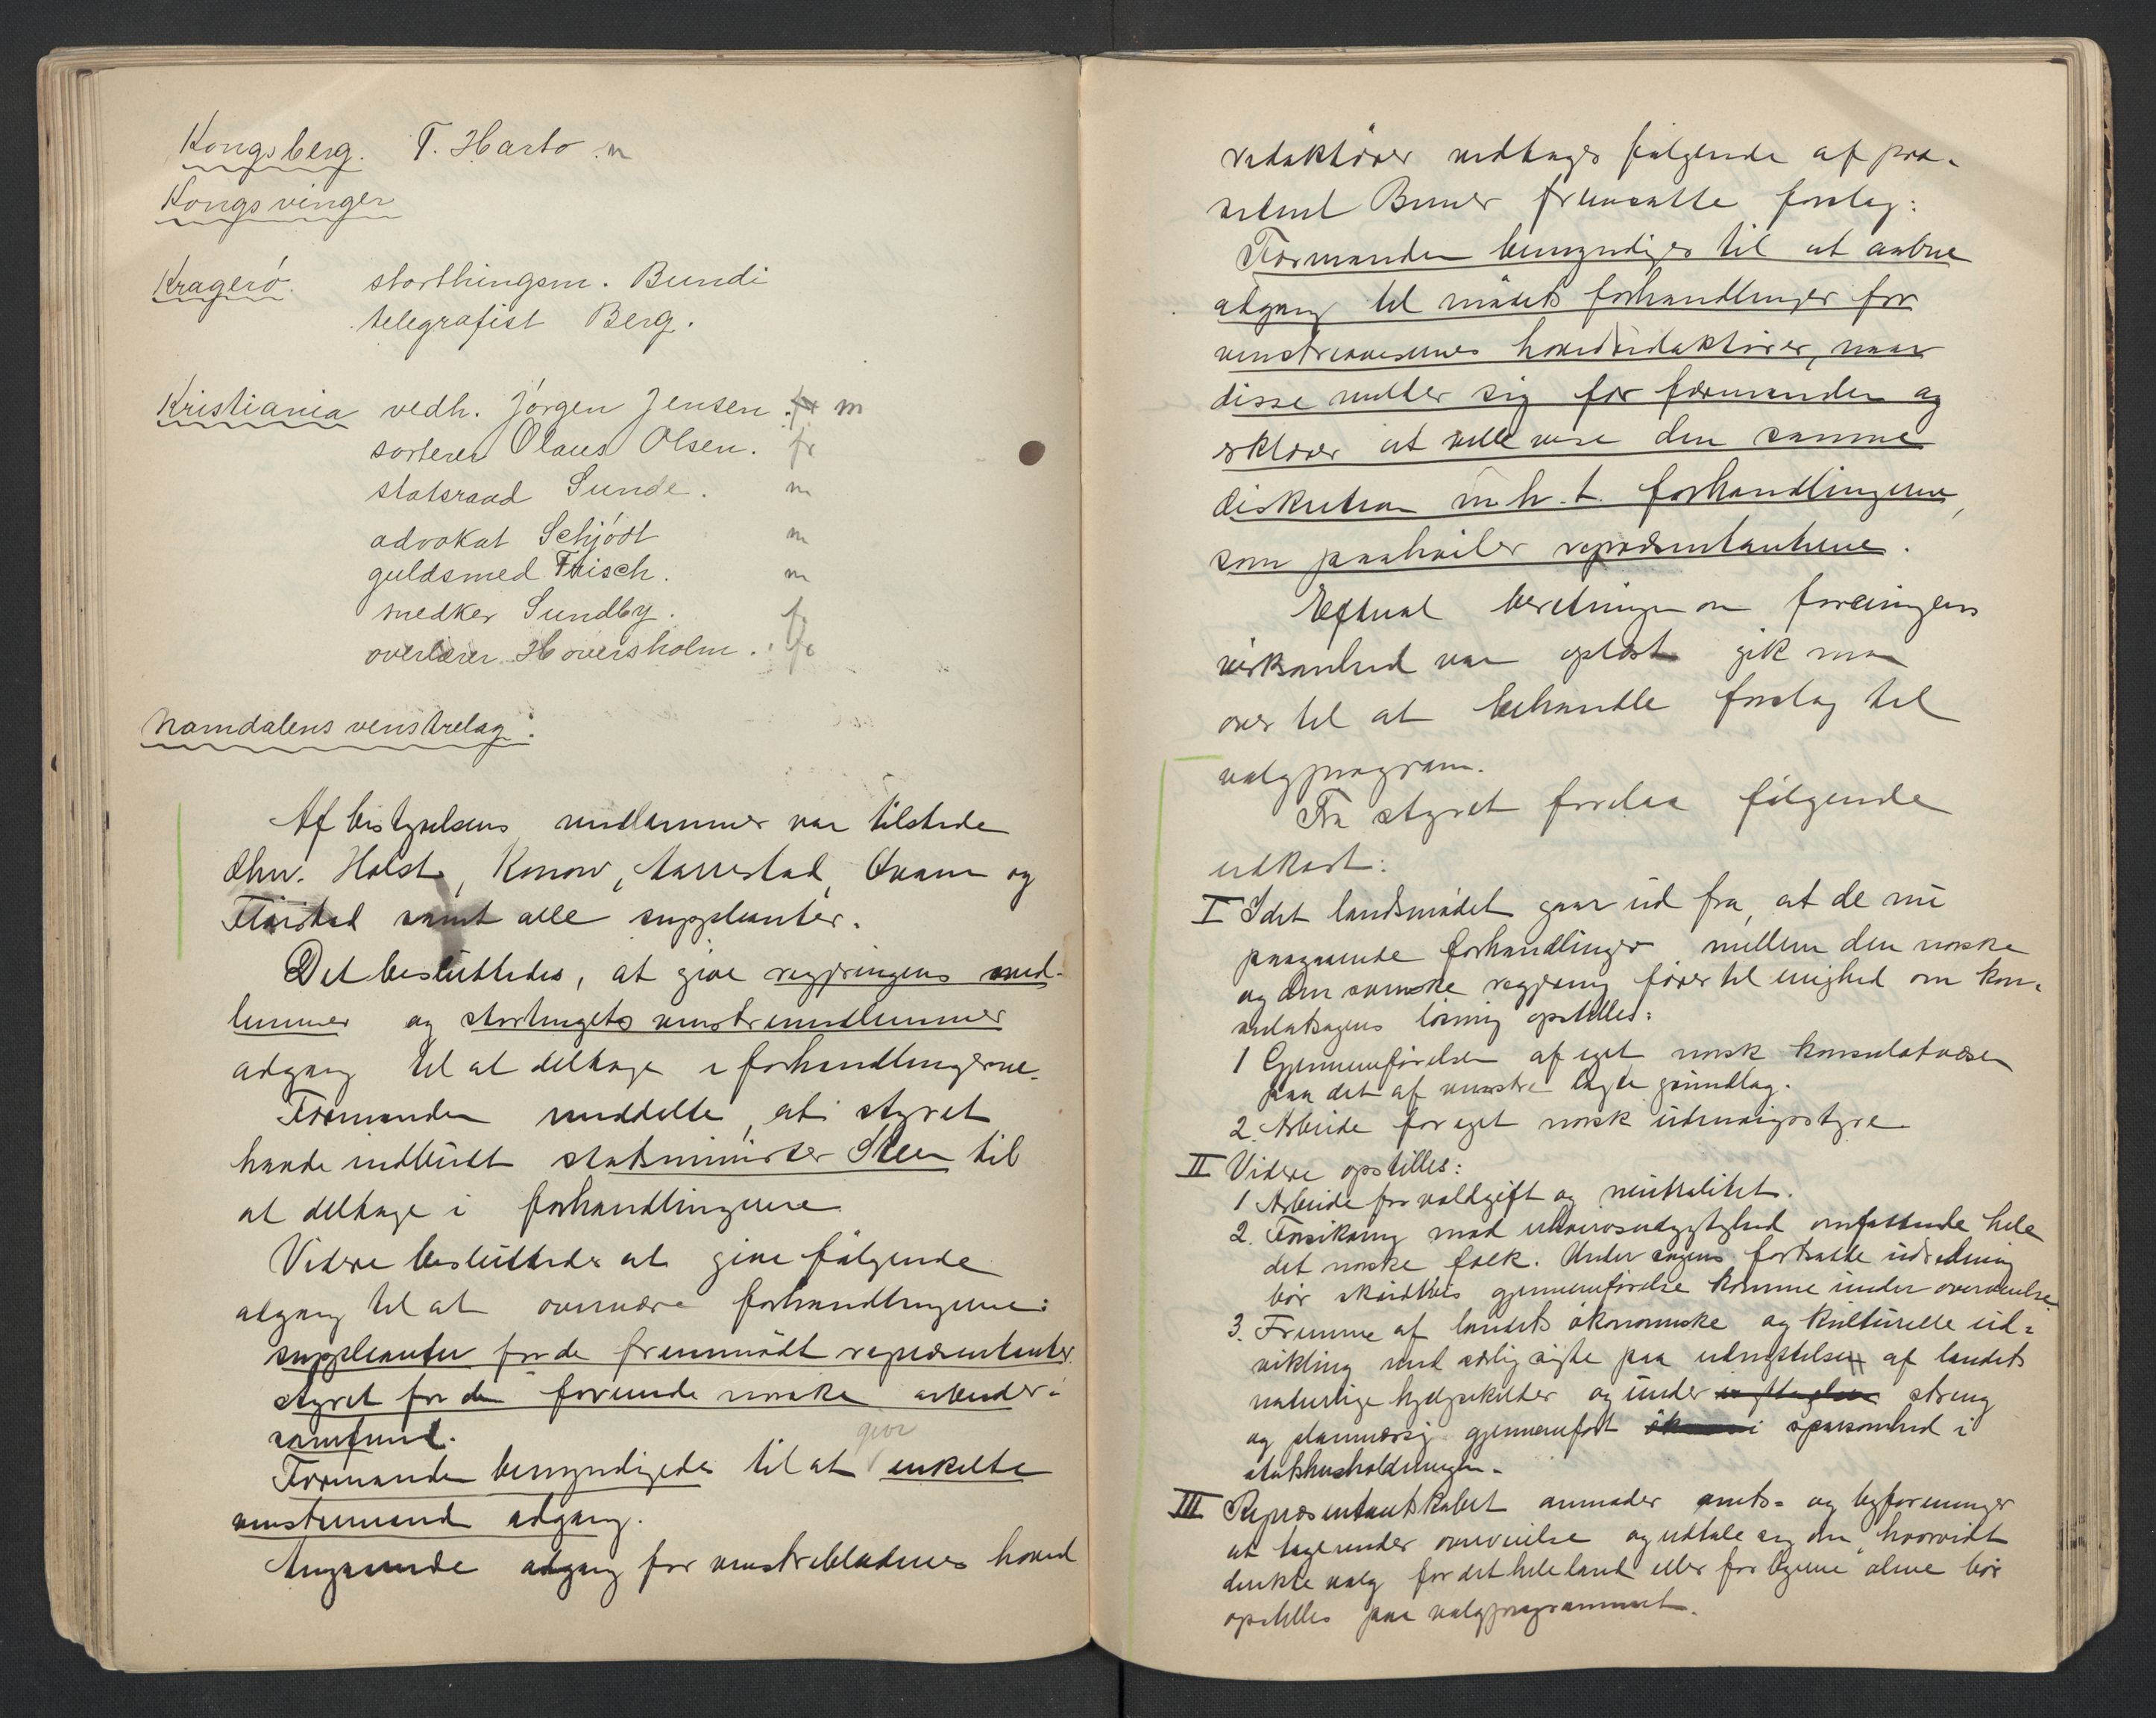 Kongsberg. T. Harbo . m
Kongsvinger
Kragerö. storthingsm. Bundi
telegrafist Berg.
Kristiania vedh. Jörgen Jensen . fr m
sorterer Olaus Olsen. fr
statsraad Sunde. m
advokat Schjödt m
guldsmed Frisch. m
snedker Sundby. fr
overlærer Hoversholm. fr
Namdalens venstrelag:
Af bistyrelsens medlemmer var tilstede
dhrr. Holst, Konow, Aarrestad, Qvam og
Fløistad samt alle suppleanter.
Det besluttedes, at give regjeringens med-
lemmer og stortingets venstremedlemmer
adgang til at deltage i forhandlingerne.
Formanden meddelte, at styret
havde indbudt statsminister Steen til
at deltage i forhandlingerne
Videre besluttedes at give følgende
adgang til at overvære forhandlingerne:
suppleanter for de fremmødt repræsentanter.
styret for de forenede norske arbeider-
samfund.
Formanden bemyndigedes til at give enkelte
venstremænd adgang.
Angaaende adgang for venstrebladenes hoved
redaktører vedtages følgende af præ-
sident Bruner fremsatte forslag:
Formanden bemyndiges til at aabne
adgang til mødets forhandlinger for
venstreavisernes hovedredaktører, naar
disse melder sig for formanden og
erklærer at ville vise den samme
diskretion m.h.t. forhandlingerne,
som paahviler repræsentanterne.
Efterat beretningen om foreningens
virksomhed var oplæst gik man
over til at behandle forslag til
valgprogram.
Fra styret forelaa følgende
udkast:
I Idet landsmødet gaar ud fra, at de nu
paagaaende forhandlinger mellem den norske
og den svenske regjering fører til enighed om kon-
sulatsagens løsning opstilles:
1 Gjennemførelsen af eget norsk konsulatvæsen
paa det af venstre lagte grundlag.
2. Arbeide for eget norsk udenrigsstyre
II Videre opstilles:
1 Arbeide for voldgift og neutralitet.
2. Forsikring mod erhvervsudygtighed omfattende hele
det norske folk. Under sagens fortsatte udredning
bør skridtvis gjennemførelse komme under overveielse
3. Fremme af landets økonomiske og kulturelle ud-
vikling med særlig sigte paa udnyttelsen af landets
naturlige hjelpekilder og under streng
og planmæssig gjennemført sparsomhed i
statshusholdningen.
III Repræsentantskabet anmoder amts- og byforeninger
at tage under overveielse og udtale sig om, hvorvidt
direkte valg for det hele land eller for byerne alene bør
opstilles paa valgprogrammet.